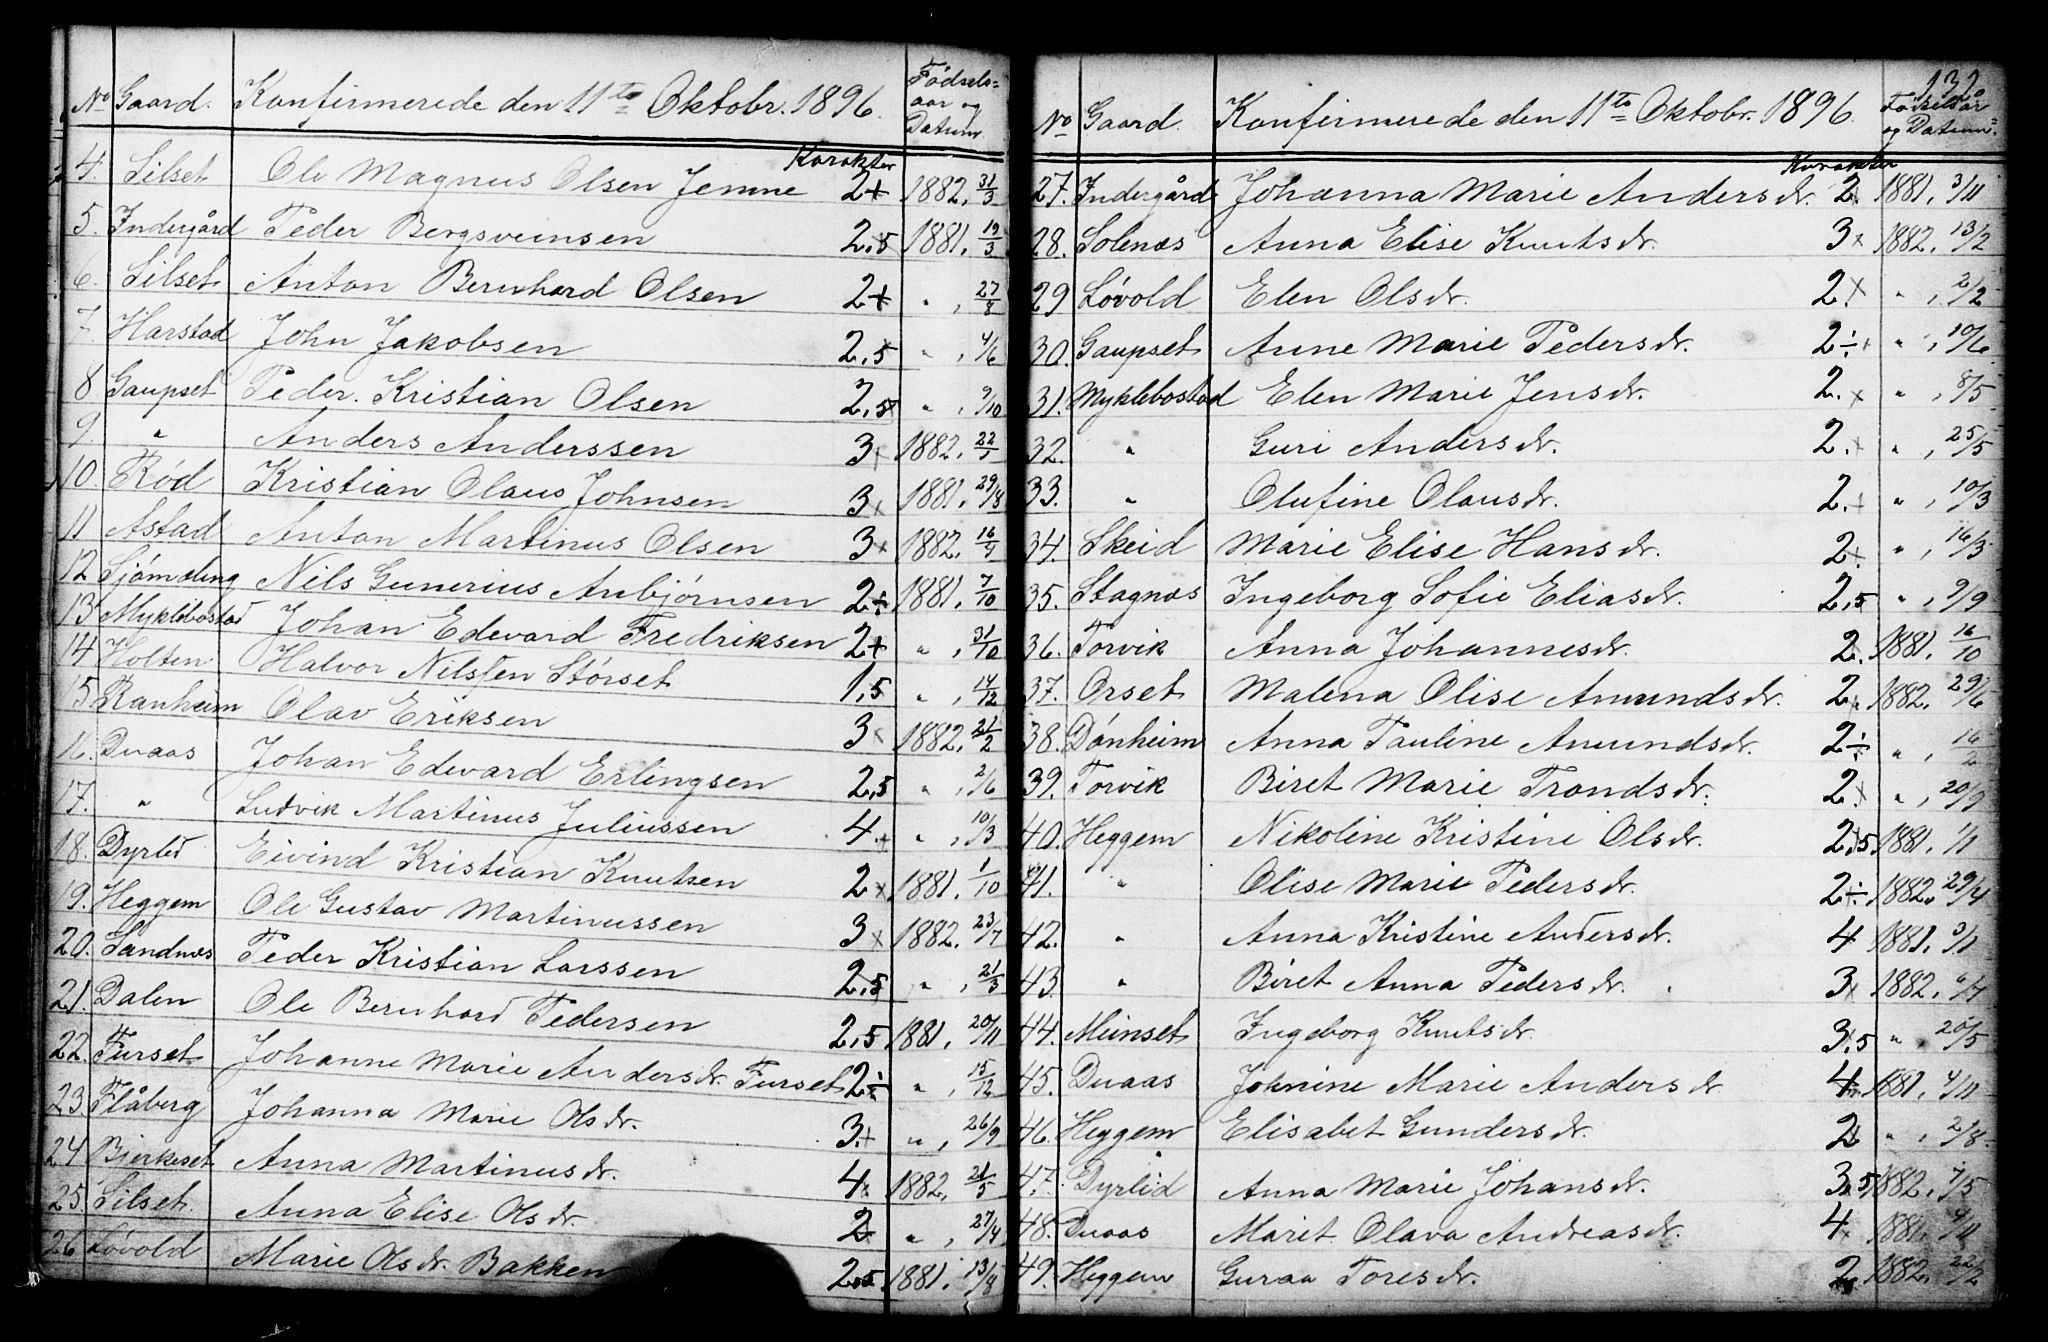 No Gaard. Konfirmerede den 11te Oktobr. 1896. Fødsels=
aar og
Datum.
Karakter
4. Silset Ole Magnus Olsen Jemne 2+ 1882. 31/3
5. Indergård Peder Bergsveinsen 2,5 1881. 19/3
6. Silset Anton Bernhard Olsen 2+ " , 27/8
7. Harstad John Jakobsen 2,5 " , 4/6
8 Gaupset Peder. Kristian Olsen 2,5 " , 9/10
9. " Anders Anderssen 3 1882. 22/1
10. Rød Kristian Olaus Johnsen 3 1881. 29/8
11 Astad Anton Martinus Olsen 3 1882. 16/4
12 Sjømæling Nils Gunerius Anbjørnsen 2÷ 1881. 7/10
13 Myklebostad Johan Edvard Fredriksen 2+ " , 31/10
14 Holten Halvor Nilssen Størset 1,5 " , 14/12
15 Ranheim Olav Eriksen 3 1882. 21/2
16. Duaas Johan Edvard Erlingsen 2,5 " , 2/6
17. " Ludvik Martinus Juliussen 4. " , 10/3
18. Dyrlid Eivind Kristian Knutsen 2 1881. 1/10
19. Heggem Ole Gustav Martinussen 3 1882. 23/7
20. Sandnes Peder Kristian Larssen 2,5 " , 21/3
21. Dalen Ole Bernhard Pedersen 2,5 1881. 20/11
22. Furset Johanne Marie Andersdr. Furset 2÷ " , 15/12
23 Flåberg Johanna Marie Olsdr. 3. " , 26/9
24 Bjerkeset Anna Martinusdr. 4. 1882. 21/5
25 Silset. Anna Elise Olsdr. 2 " , 27/4
26 Løvold Marie Olsdr. Bakken 2,5. 1881. 13/8
132
No Gaard. Konfirmerede den 11te Oktobr. 1896. Fødselsår
og Datum.
Karakter
27. Indergård Johanna Marie Andersdr. 2 1881. 3/11
28. Solenæs Anna Elise Knutsdr. 3 1882. 13/2
29 Løvold Elen Olsdr. 2. " , 2/2
30. Gaupset Anne Marie Pedersdr. 2÷ " , 10/6
31. Myklebostad Elen Marie Jensdr. 2. " , 8/5
32. " Guri Andersdr. 2. " , 25/5
33. " Olufine Olausdr. 2. " , 10/3
34. Skeid Marie Elise Hansdr. 2. " , 16/3
35. Stagnæs Ingeborg Sofie Eliasdr. 2,5 " , 9/9
36. Torvik Anna Johannesdr. 2. 1881. 16/10
37. Orset Malena Olise Amundsdr. 2. 1882. 29/6
38. Dønheim Anna Pauline Amundsdr. 2÷ " , 16/2
39. Torvik Beret Marie Trondsdr. 2. " , 20/9
40. Heggem Nikoline Kristine Olsdr. 2,5. 1881. 1/11
41. " Olise Marie Pedersdr. 2÷ 1882. 29/4
42. " Anna Kristine Andersdr. 4 1881.
43. " Beret Anna Pedersdr. 3 1882. 6/7
44. Meinset Ingeborg Knutsdr. 3,5 " , 20/5
45. Duaas Johnine Marie Andersdr 4 1881. 4/11
46. Heggem Elisabet Gundersdr. 2 " , 2/8
47. Dyrlid Anna Marie Johansdr. 3,5 1882. 7/5
48. Duaas Marit. Olava Andreasdr. 4 1881. 4/11
49. Heggem Guraa Toresdr. 2. 1882. 22/2